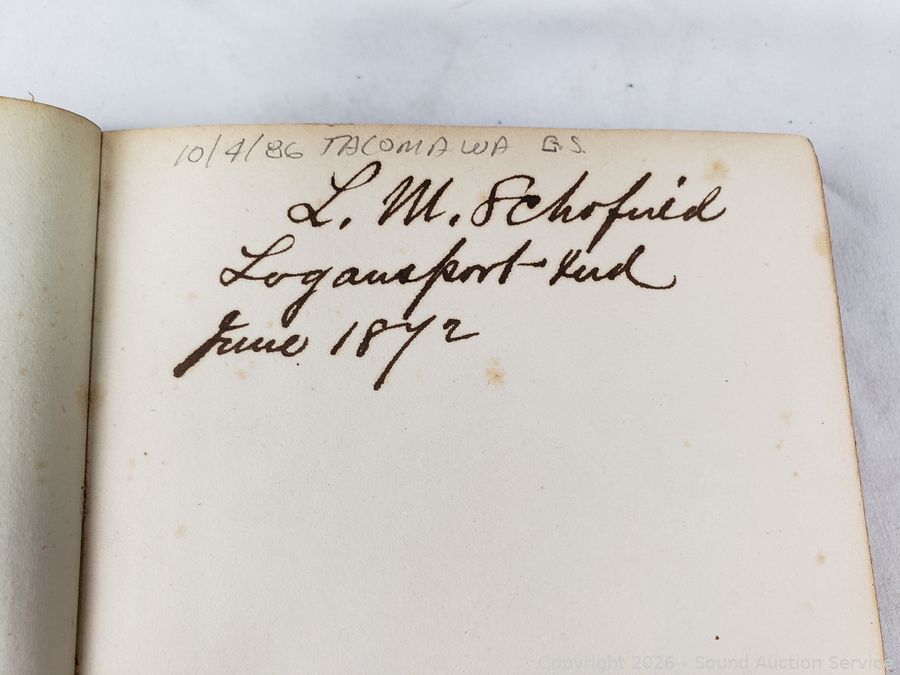 10/4/86 TACOMA WA G.S.
L. M. Schofield
Logansport Ind
June 1872
Copyright 2026 - Sound Auction Service